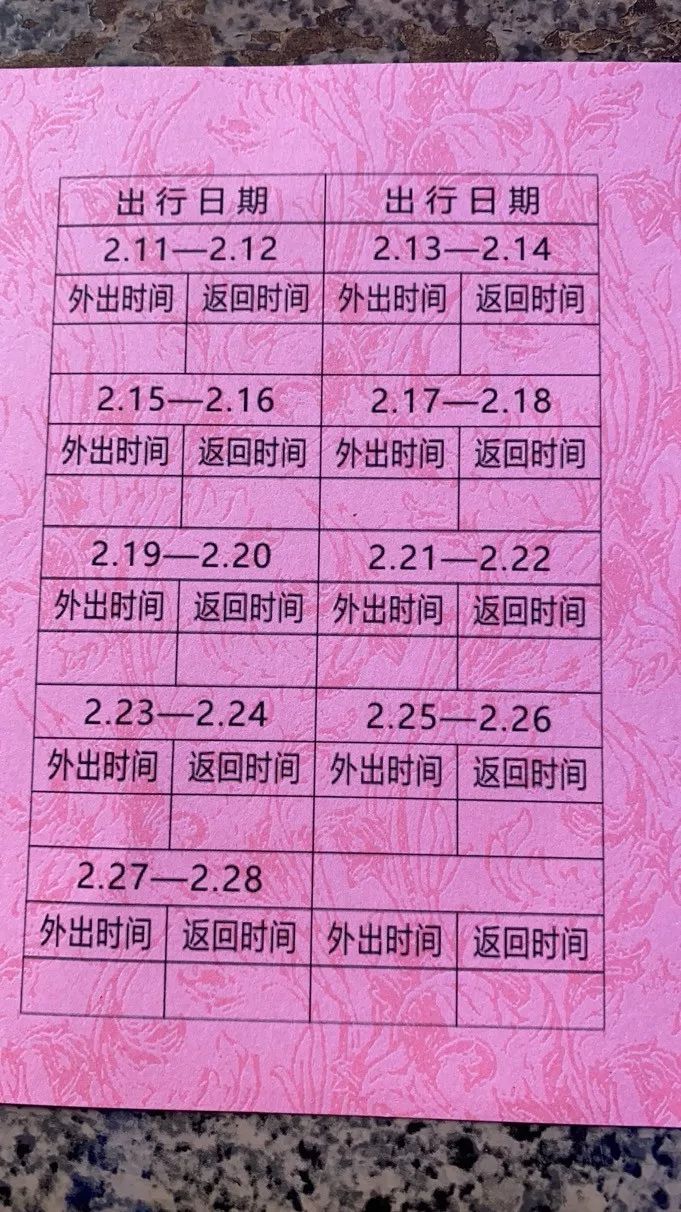 出行日期 出行日期
2.11—2.12 2.13—2.14
外出时间 返回时间 外出时间 返回时间
2.15—2.16 2.17—2.18
外出时间 返回时间 外出时间 返回时间
2.19—2.20 2.21—2.22
外出时间 返回时间 外出时间 返回时间
2.23—2.24 2.25—2.26
外出时间 返回时间 外出时间 返回时间
2.27—2.28
外出时间 返回时间 外出时间 返回时间